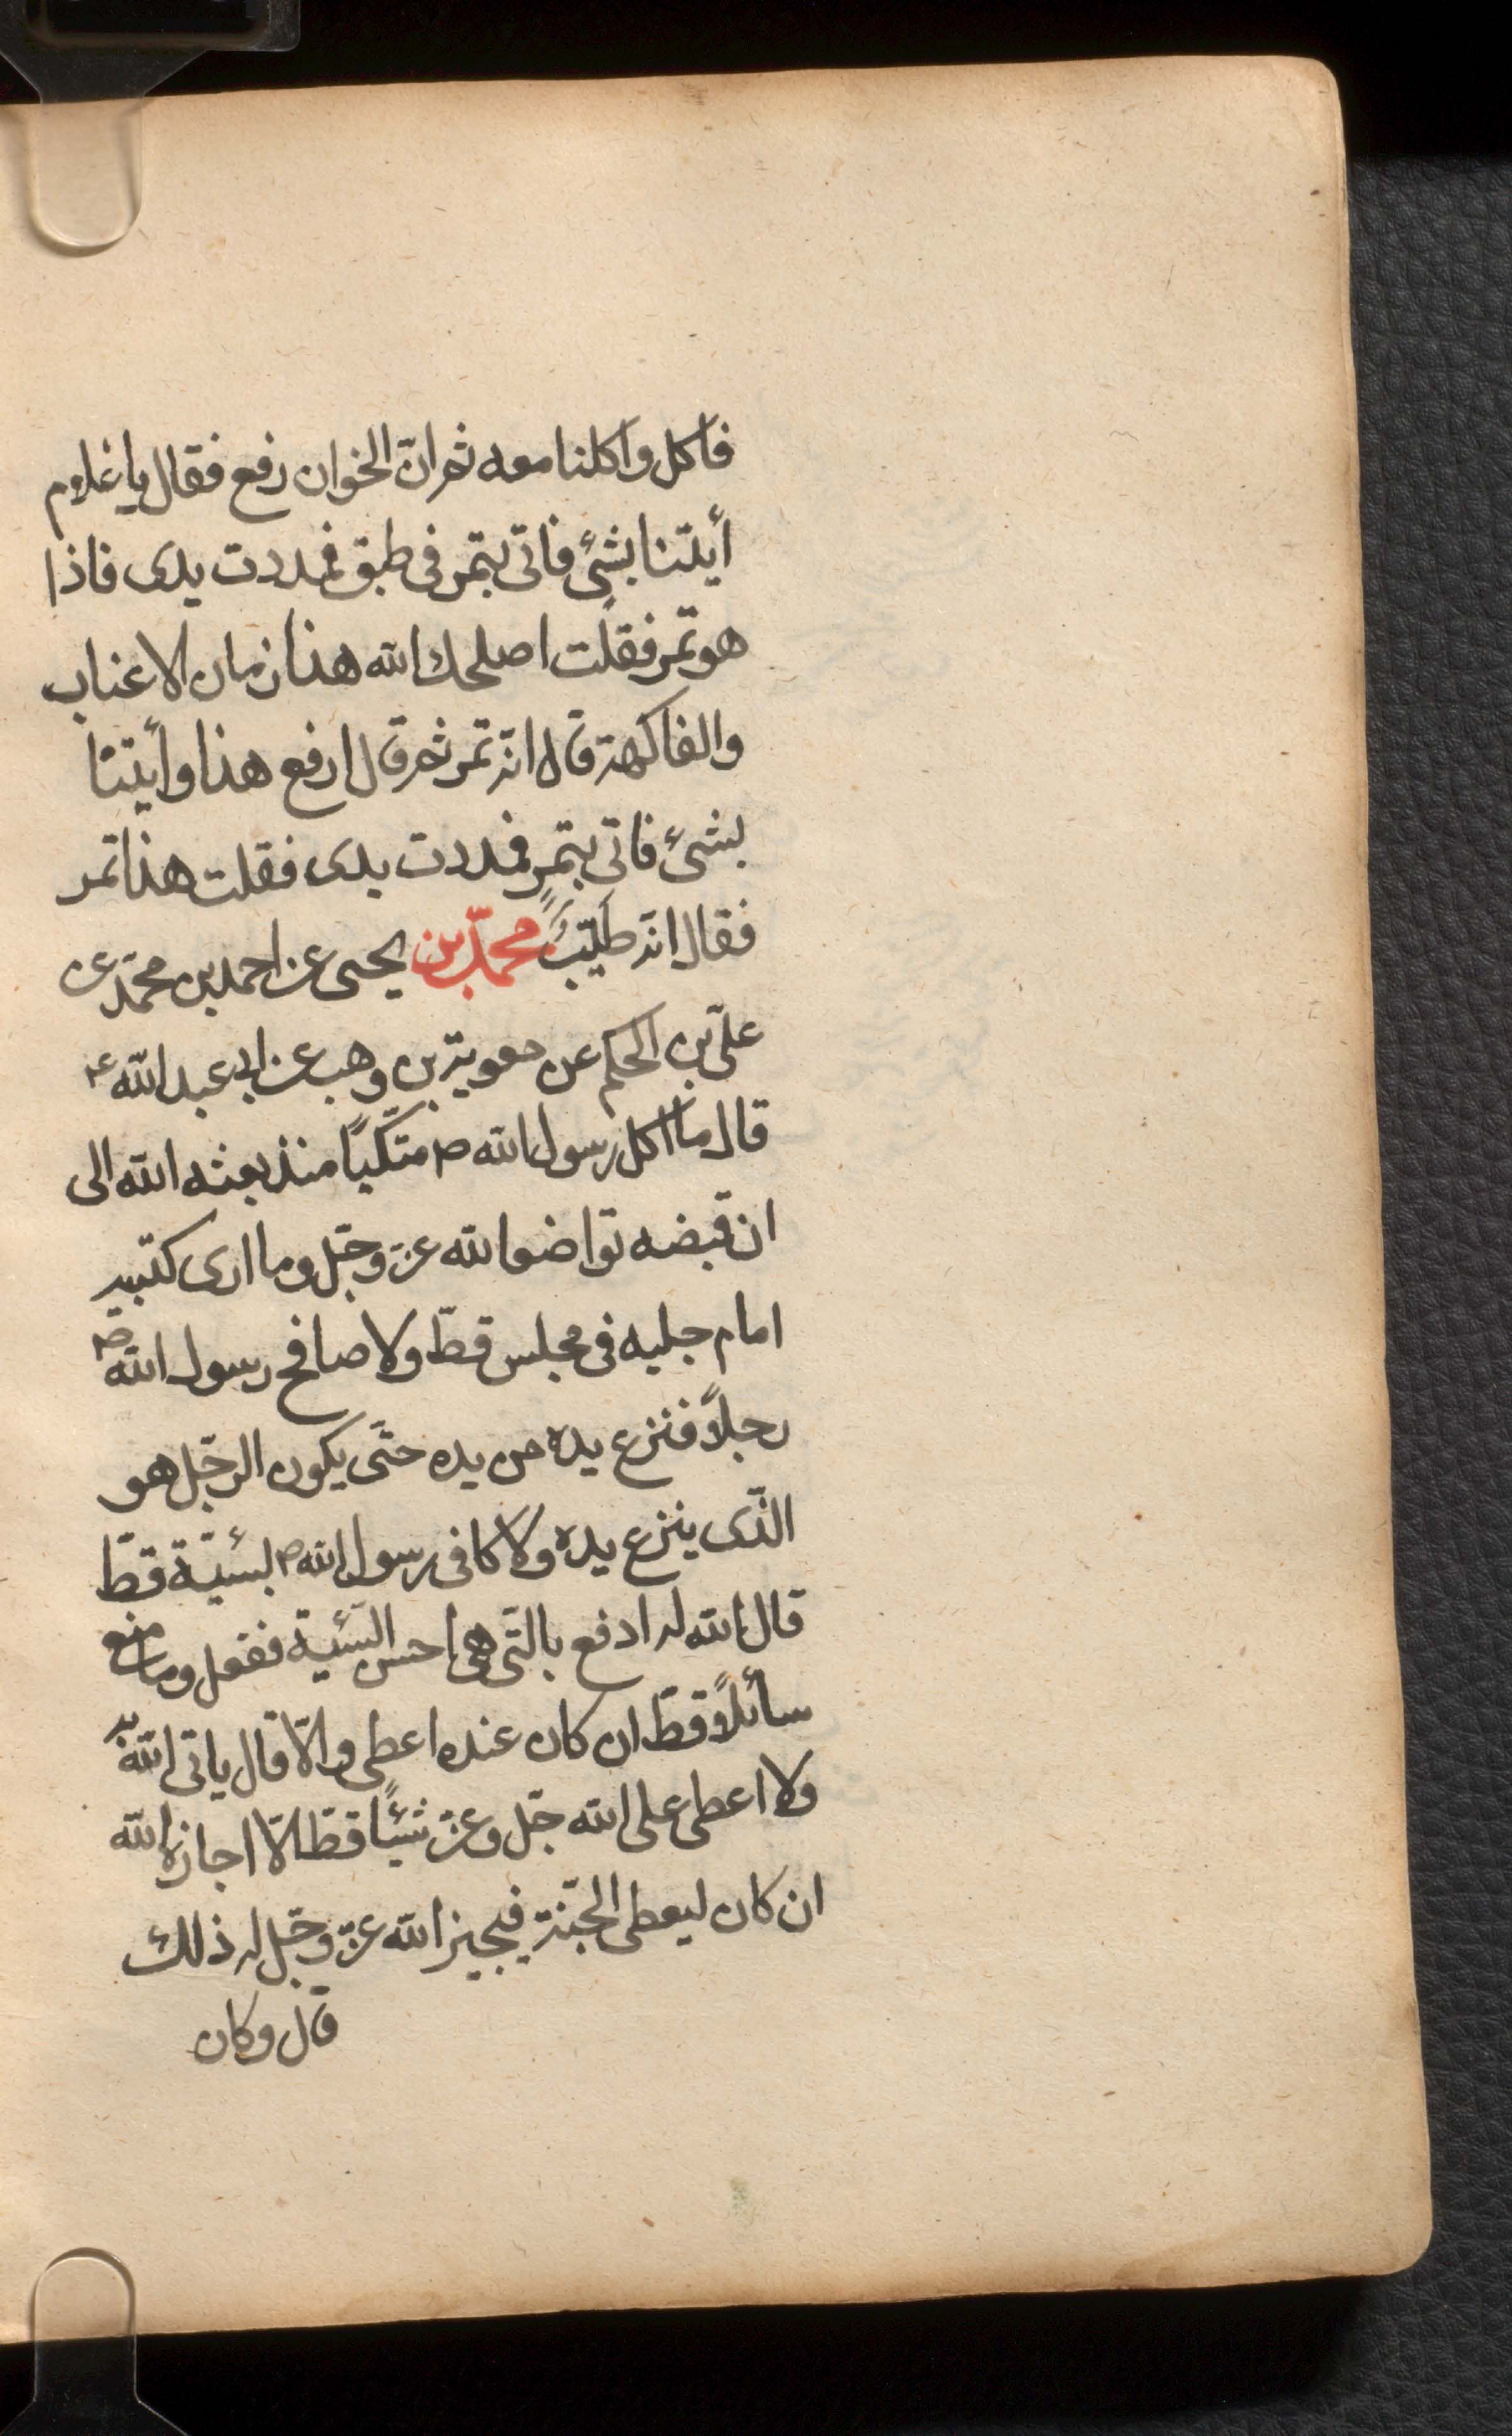 فاكل واكلنا معه ثم ان الخوان رفع فقال يا غلام
أيتنا بشئ فاتى بتمر فى طبق فمددت يدى فاذا
هو تمر فقلت اصلحك الله هذا زمان الاعناب
والفاكهة قال انه تمر ثم قال ارفع هذا وأيتنا
بشئ فاتى بتمر فمددت يدى فقلت هذا تمر
فقال انه طيّب محمّد بن يحيى عن احمد بن محمّد عن
علىّ بن الحكم عن معوية بن وهب عن ابى عبد الله ع
قال ما اكل رسول الله ص متّكيًا منذ بعثه الله الى
ان قبضه تواضعا لله عزّ وجلّ وما ارى كتبيه
امام جليه فى مجلس قطّ ولا صافح رسول الله ص
رجلاً فنزع يده من يده حتّى يكون الرجل هو
الّذى ينزع يده ولا كافى رسول الله ص بسئيّة قطّ
قال الله له ادفع بالّتى هى احسن السّئية ففعل وما منع
سائلاً قطّ ان كان عنده اعطى والّا قال ياتى الله به
ولا اعطى على الله جلّ وعزّ شيئًا قطّ الّا اجازه الله
ان كان ليعطى الجنّة فيجيز الله عزّ وجلّ له ذلك
قال وكان